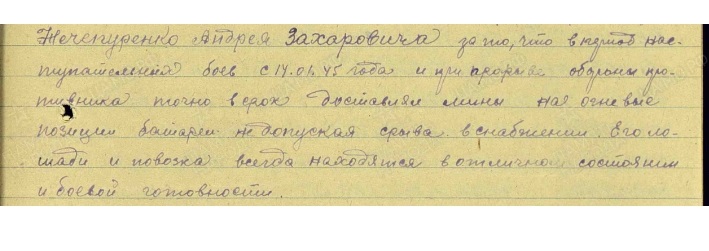 Жечепуренко Андрея Захаровича за то, что в период нас-
тупательных боев с 14.01.45 года и при прорыве обороны про-
тивника точно в срок доставлял мины на огневые
позиции батареи не допуская срыва в снабжении. Его ло-
шади и повозка всегда находятся в отличном состоянии
и боевой готовности.